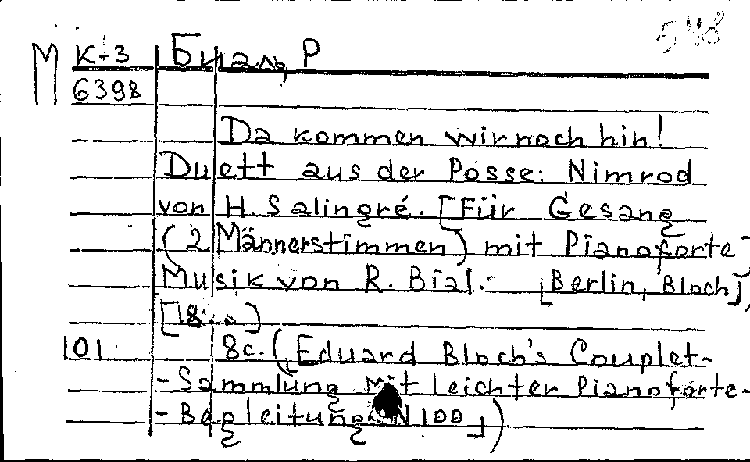 548
М К-3 Биаль, Р
6398
Da kommen wir noch hin!
Duett aus der Posse: Nimrod
von H. Salingré. [Für Gesang
(2 Männerstimmen) mit Pianoforte]
Musik von R. Bial.- [Berlin, Bloch],
[18..]
101 8c. (Eduard Bloch's Couplet-
-Sammlung mit leichter Pianoforte-
-Begleitung N 100])